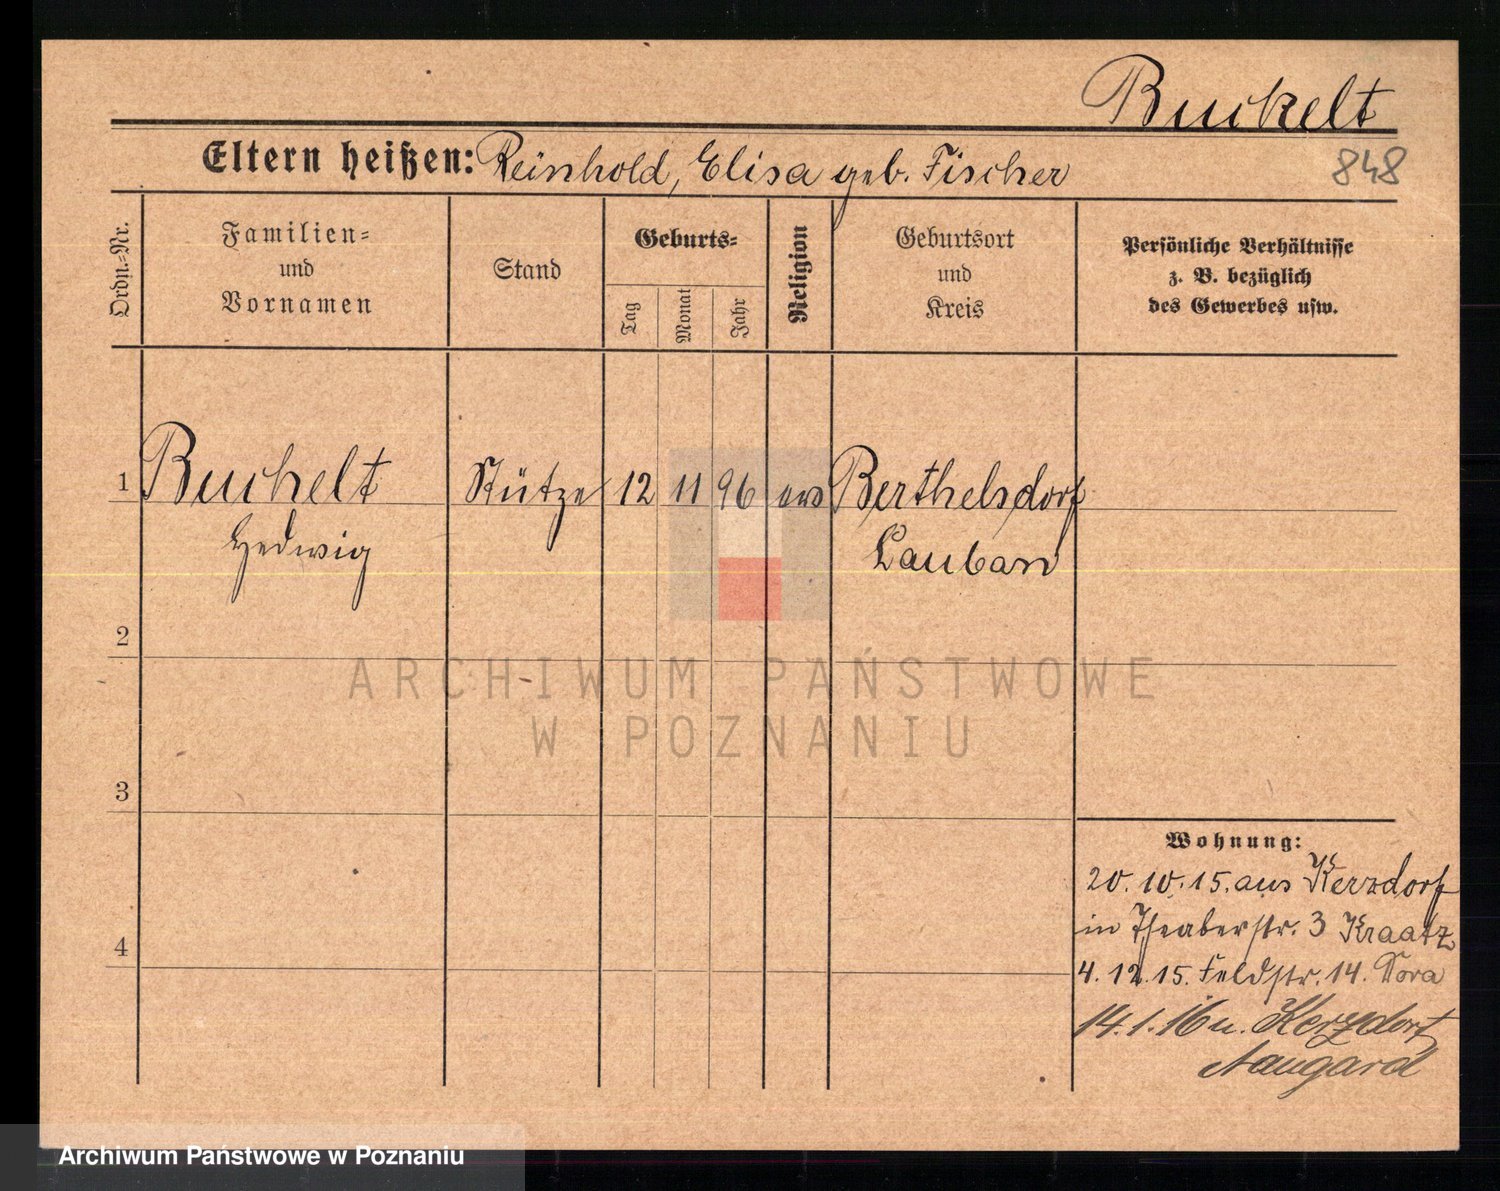 Buckelt
Eltern heißen: Reinhold, Elisa geb. Fischer
848
Ordn.-Nr.
Familien-
und
Vornamen
Stand
Geburts-
Tag
Monat
Jahr
Religion
Geburtsort
und
Kreis
Persönliche Verhältnisse
z. B. bezüglich
des Gewerbes usw.
1 Buckelt Stütze 12 11 96 Berthelsdorf
Hedwig Lauban
2
3
4
Wohnung:
20.10.15. aus Kerzdorf
in Theaterstr. 3 Kraatz
4.12.15. Feldstr. 14.
14.1.16 n. Kerzdorf
Naugard
ARCHIWUM PAŃSTWOWE
W POZNANIU
Archiwum Państwowe w Poznaniu